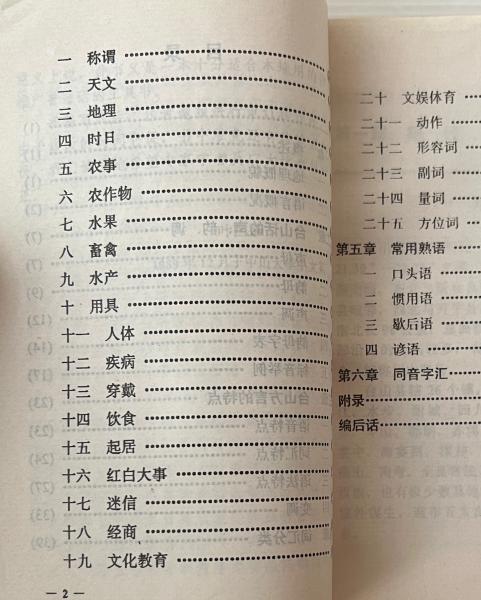 一 称谓
二 天文
三 地理
四 时日
五 农事
六 农作物
七 水果
八 畜禽
九 水产
十 用具
十一 人体
十二 疾病
十三 穿戴
十四 饮食
十五 起居
十六 红白大事
十七 迷信
十八 经商
十九 文化教育
— 2 —
二十 文娱体育
二十一 动作
二十二 形容词
二十三 副词
二十四 量词
二十五 方位词
第五章 常用熟语
一 口头语
二 惯用语
三 歇后语
四 谚语
第六章 同音字汇
附录
编后话